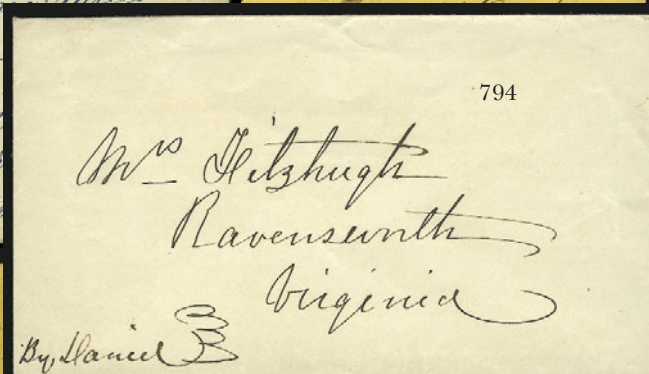 794
Mrs Fitzhugh
Ravensworth
Virginia
By, Daniel